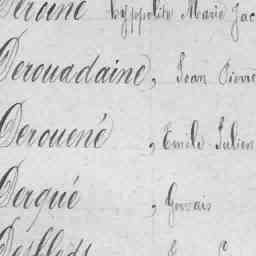 Deroine hyppolite Marie Jac
Derouadaine, Jean Pierre
Derouené, Emile Julien
Derqué, Gervais